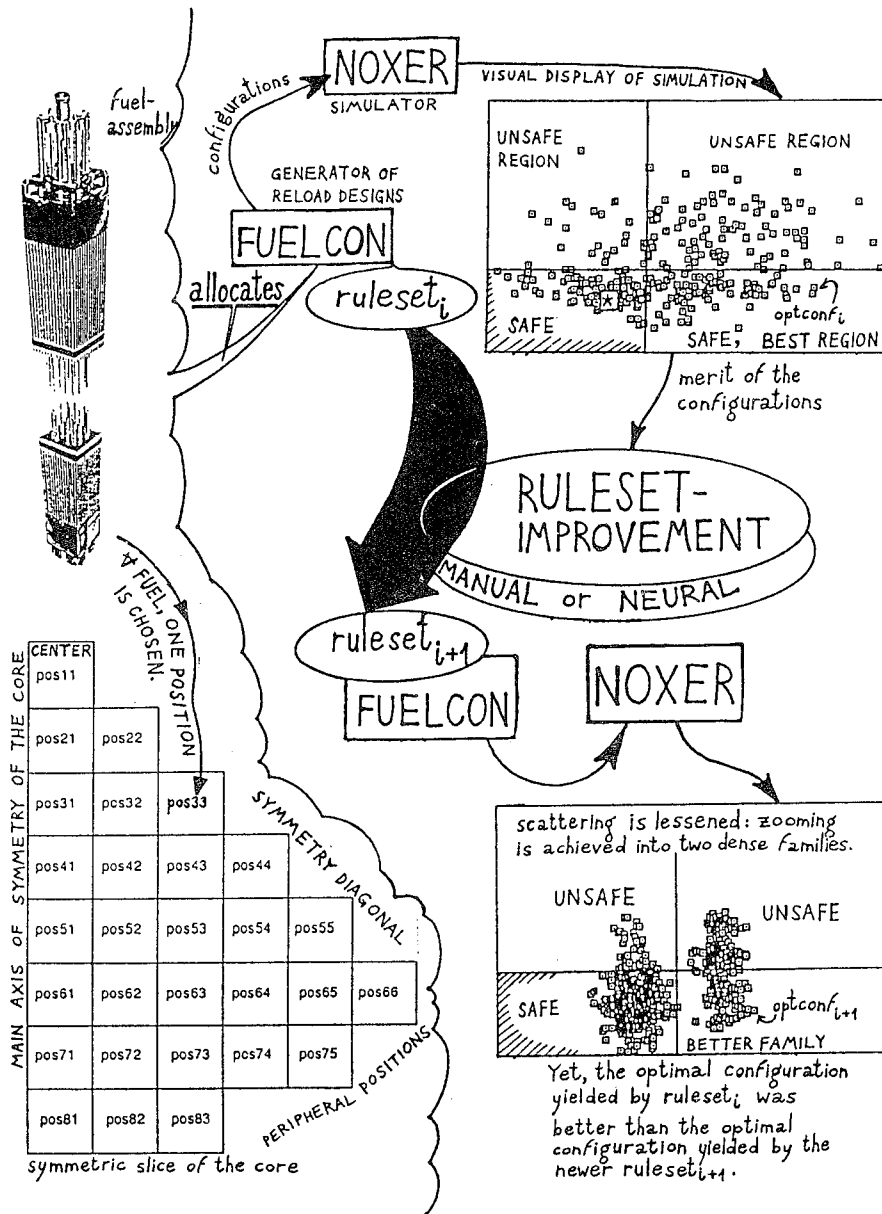 fuel-
assembly
configurations
NOXER
SIMULATOR
VISUAL DISPLAY OF SIMULATION
UNSAFE
REGION
UNSAFE REGION
GENERATOR OF
RELOAD DESIGNS
FUELCON
allocates
ruleset i
SAFE
*
optconf i
SAFE, BEST REGION
merit of the
configurations
RULESET-
IMPROVEMENT
MANUAL or NEURAL
∀ FUEL, ONE POSITION
IS CHOSEN.
ruleset i+1
FUELCON
NOXER
MAIN AXIS OF SYMMETRY OF THE CORE
CENTER
pos11
pos21 pos22
pos31 pos32 pos33
pos41 pos42 pos43 pos44
pos51 pos52 pos53 pos54 pos55
pos61 pos62 pos63 pos64 pos65 pos66
pos71 pos72 pos73 pos74 pos75
pos81 pos82 pos83
SYMMETRY DIAGONAL
PERIPHERAL POSITIONS
symmetric slice of the core
scattering is lessened: zooming
is achieved into two dense families.
UNSAFE
UNSAFE
SAFE
optconf i+1
BETTER FAMILY
Yet, the optimal configuration
yielded by ruleset i was
better than the optimal
configuration yielded by the
newer ruleset i+1.